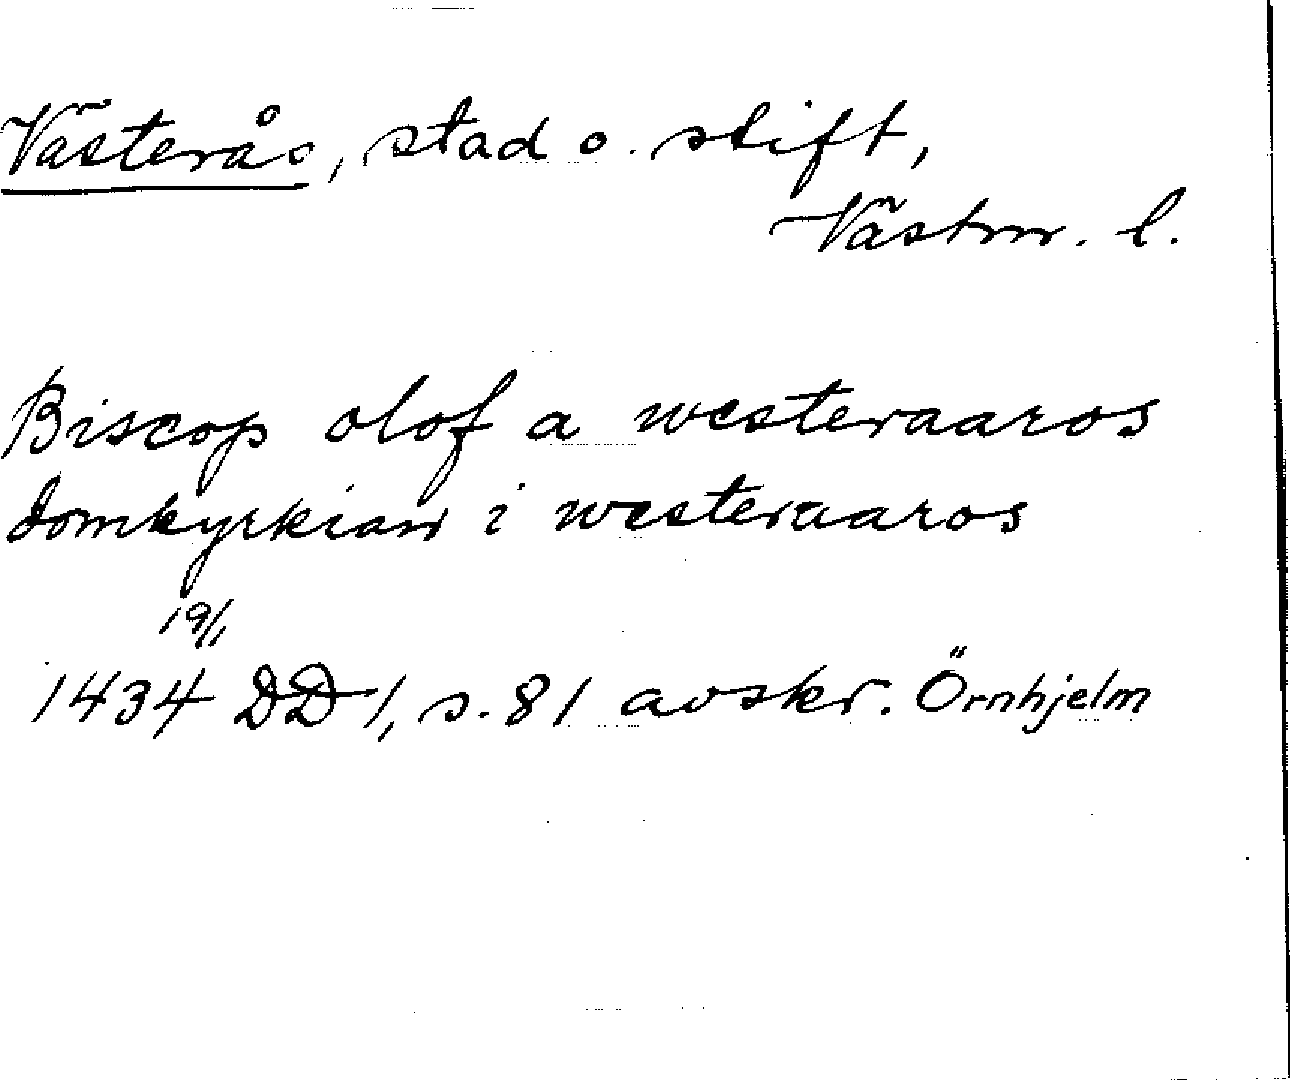 Västerås, stad o. stift,
Västm. l.
Biscop olof a westeraaros
domkyrkian i westeraaros
19/1
1434 DD 1, s. 81 avskr. Örnhjelm